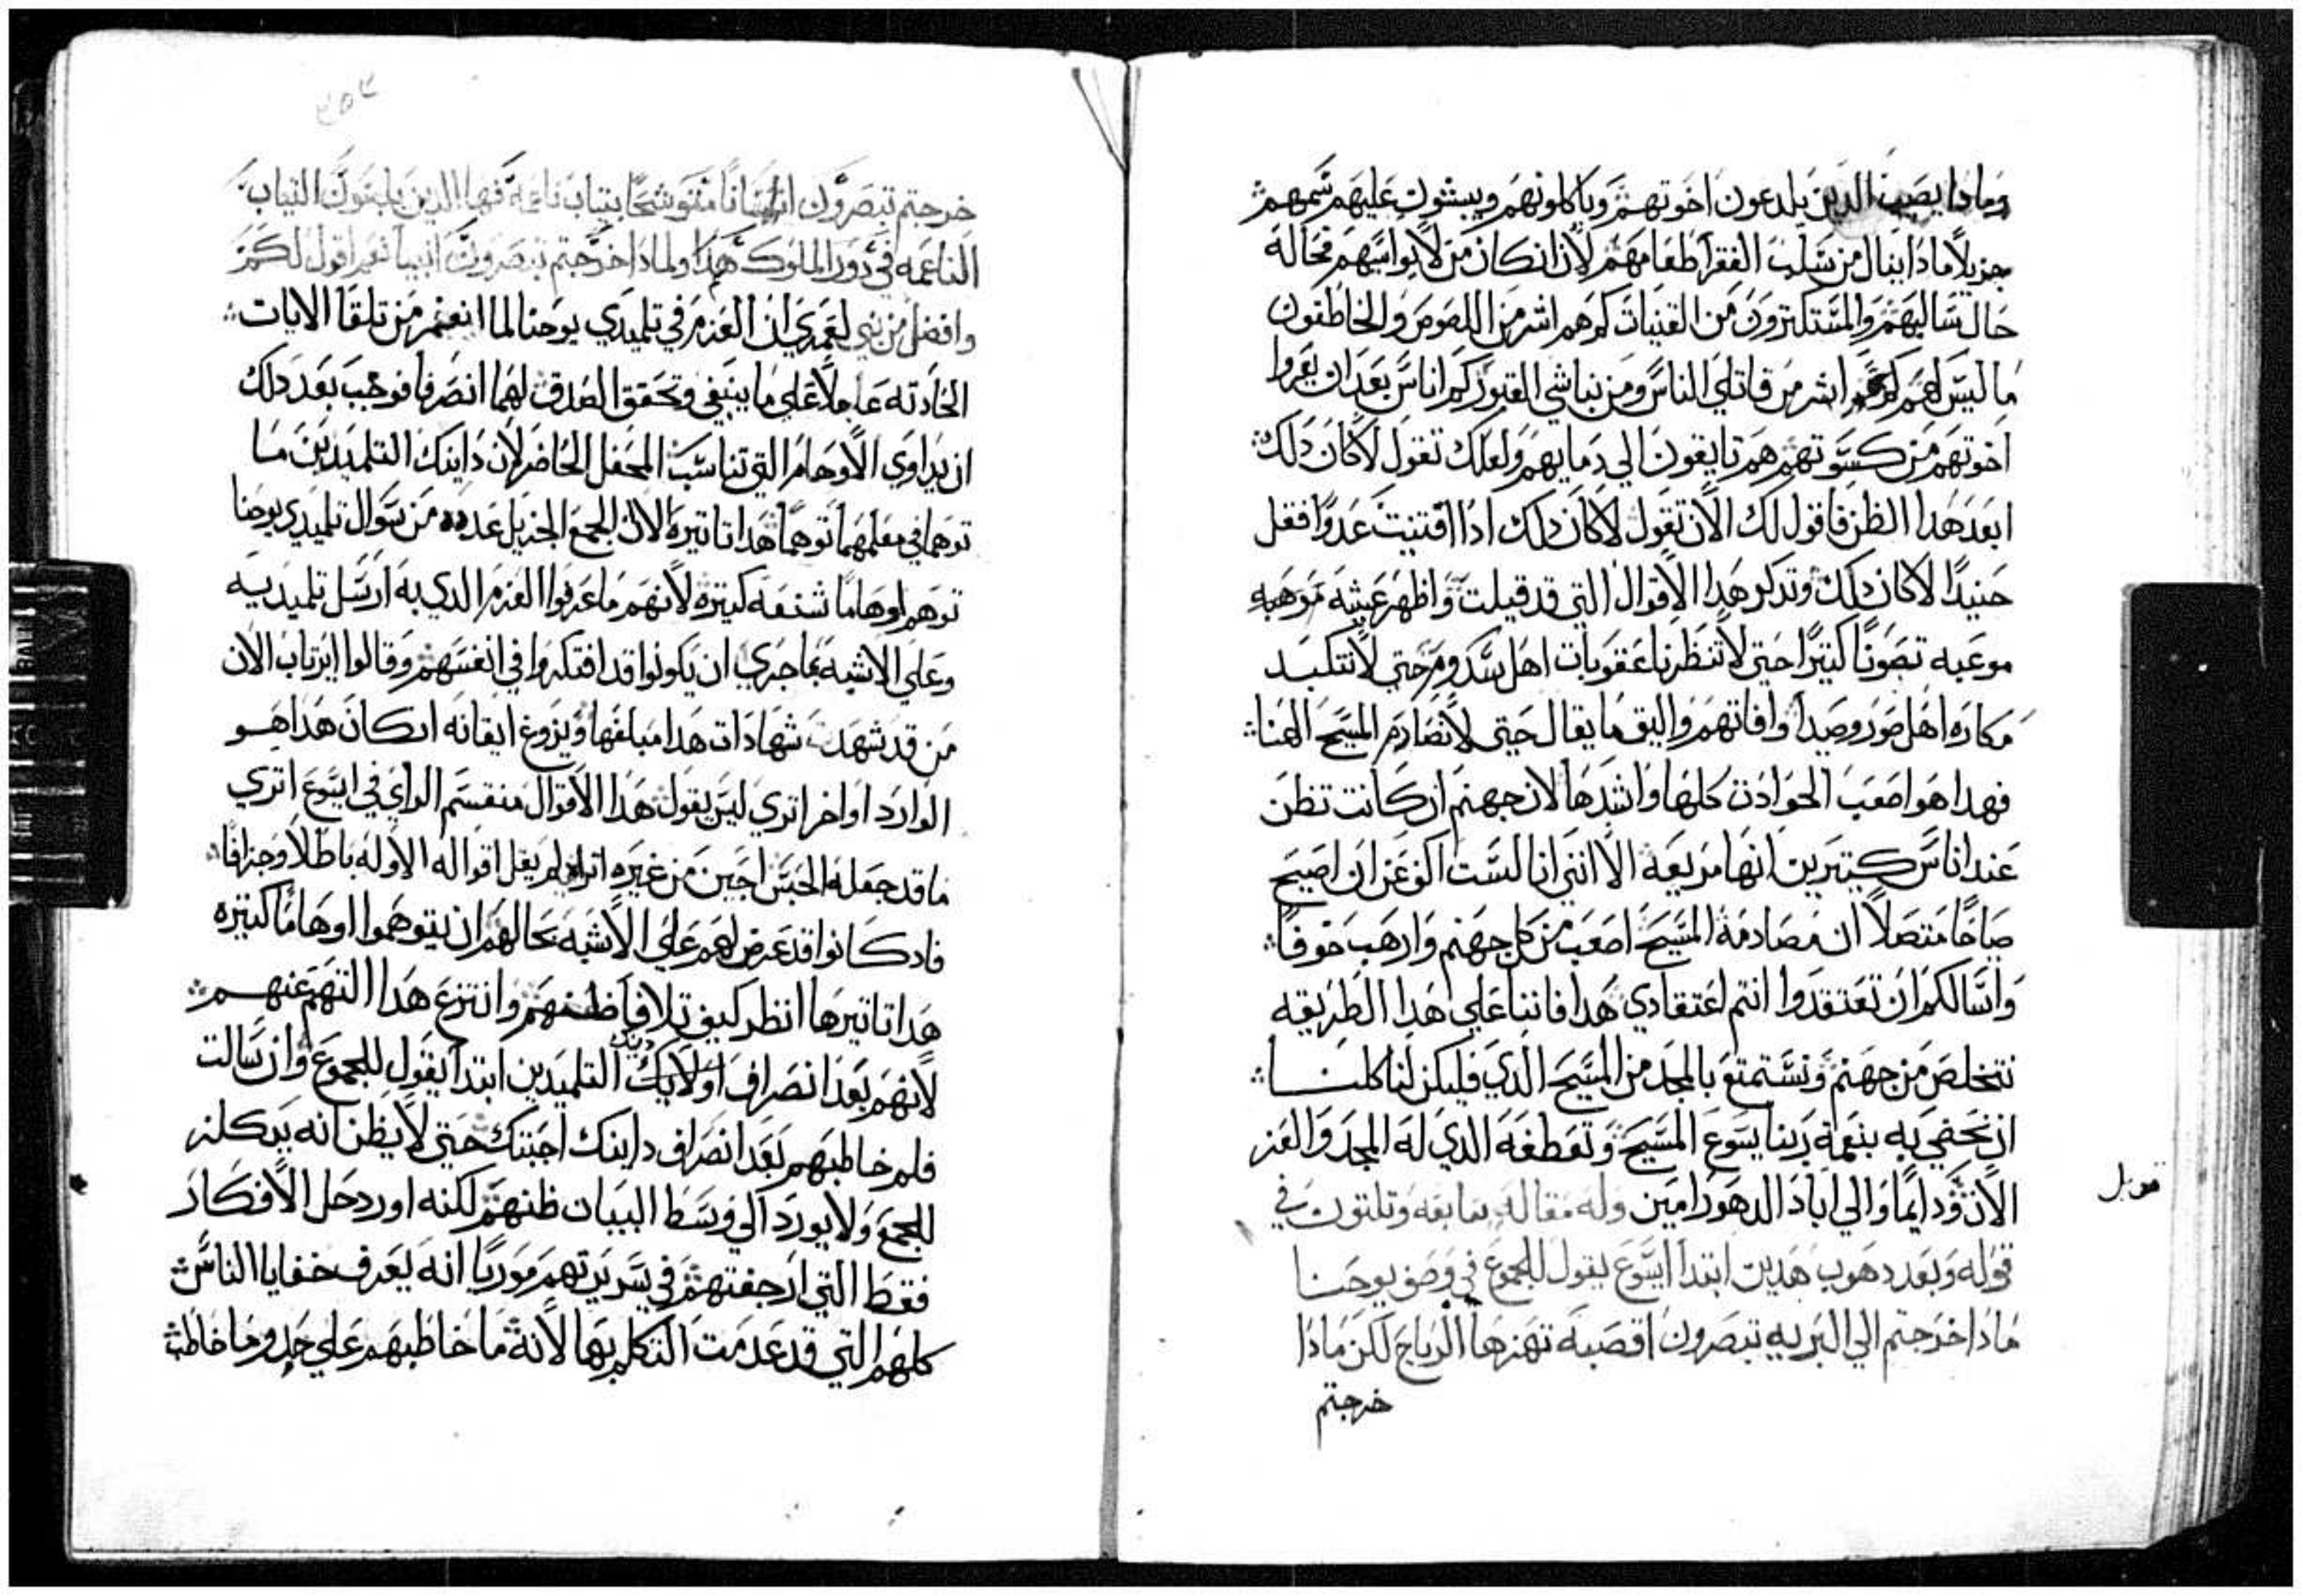 وماذا يصيب الذين يلدعون اخوتهم وياكلونهم ويبثون عليهم سمهم
جزيلا ماذا ينال من سلب الفقرا طعامهم لان ان كان من لا يواسيهم فحاله
حال سالبهم والمستكثرون من القنيات كم هم اشر من اللصوص والخاطفون
ما ليس لهم كم هم اشر من قاتلي الناس ومن نباشي القبور كم اناس بعد ان يعروا
اخوتهم من كسوتهم هم تايقون الي دمايهم ولعلك تقول لا كان ذلك
ابعد هدا الظن فاقول لك الان تقول لا كان دلك ادا اقتنيت عدوا فقل
حنيدا لا كان دلك وتدكر هدا الاقوال التي قد قيلت واظهر عيشه موهبه
موعبه تصونا كتيرا حتي لا تنظرنا عقوبات اهل سدوم حتي لا نتكبد
مكاره اهل صور وصيدا وافاتهم واليق ما يقال حتي لا نصادم المسيح الهنا
فهدا هو اصعب الحوادت كلها واشدها لان جهنم ان كانت تظن
عند اناس كتيرين انها مريعه الا انني انا لست اكف عن ان اصيح
صياحا متصلا ان مصادمة المسيح اصعب من كل جهنم وارهب خوفا
واسالكم ان تعتقدوا انتم اعتقادي هدا فاننا علي هدا الطريقه
نتخلص من جهنم ونستمتع بالمجد من المسيح الدي فليكن لنا كلنا
ان نحضي به بنعمة ربنا يسوع المسيح وتعطفه الدي له المجد والعز
الان ودايما والي اباد الدهور امين وله مقاله سابعه وتلتون في
قوله وبعد دهوب هدين ابتدا ايسوع يقول للجموع في وصف يوحنا
مادا خرجتم الي البريه تبصرون اقصبه تهزها الرياح لكن مادا
خرجتم
قوبل
خرجتم تبصرون انسانا متوشحا بتياب ناعمة فها الدين يلبسون التياب
الناعمه في دور الملوك هدا ولمادا خرجتم تبصرون انبيا نعم اقول لكم
وافضل من نبي لعمري ان العزم في تلميدي يوحنا لما انعم من تلقا الايات
الحادته عاجلا علي ما ينبغي وتحقق الصدق لهما انصرفا فوجب بعد دلك
ان يداوي الاوهام التي تناسب المحفل الحاضر لان داينك التلميدين ما
توهما في معلمهما توهما هدا تاتيره الان الجمع الجزيل عدده من سوال تلميدي يوحنا
توهم اوهاما شنعه كتيره لانهم ما عرفوا العزم الدي به ارسل تلميديه
وعلي الاشبه بما جري ان يكونوا قد افتكروا في انفسهم وقالوا ايرتاب الان
من قد شهد شهادات هدا مبلغها ويزوغ ايقانه ان كان هدا هو
الوارد او اخر اتري ليس يقول هدا الاقوال منقسم الراي في ايسوع اتري
ما قد جعله الحبس اجبن من غيره اتراه لم يقل اقواله الاوله باطلا وجزافا
فاد كانوا قد عرض لهم علي الاشبه بحالهم ان يتوهموا اوهاما كتيره
هدا تاتيرها انظر كيف تلافا ظنهم وانتزع هدا التهم عنهم
لانهم بعد انصراف اولايك دينك التلميدين ابتدا يقول للجموع وان سالت
فلم خاطبهم بعد انصراف داينك اجبتك حتي لا يظن انه يدكلز
للجمع ولا يورد الي وسط البيان ظنهم لكنه اورد حل الافكار
فقط التي ارجفتهم في سريرتهم موريا انه يعرف خفايا الناس
كلهم التي قد عدمت التكلم بها لانه ما خاطبهم علي حدو ما خاطب